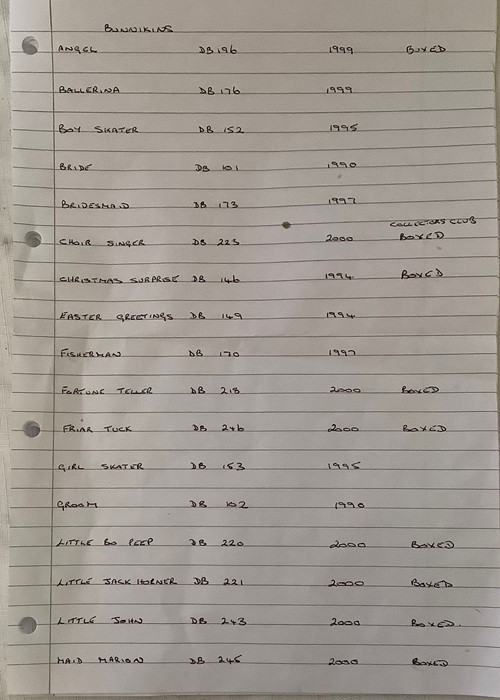 BUNNIKINS
ANGEL DB 196 1999 BOXED
BALLERINA DB 176 1999
BOY SKATER DB 152 1995
BRIDE DB 101 1990
BRIDESMAID DB 173 1997
COLLECTORS CLUB
CHOIR SINGER DB 223 2000 BOXED
CHRISTMAS SURPRISE DB 146 1994 BOXED
EASTER GREETINGS DB 149 1994
FISHERMAN DB 170 1997
FORTUNE TELLER DB 218 2000 BOXED
FRIAR TUCK DB 246 2000 BOXED
GIRL SKATER DB 153 1995
GROOM DB 102 1990
LITTLE BO PEEP DB 220 2000 BOXED
LITTLE JACK HORNER DB 221 2000 BOXED
LITTLE JOHN DB 243 2000 BOXED.
MAID MARION DB 245 2000 BOXED